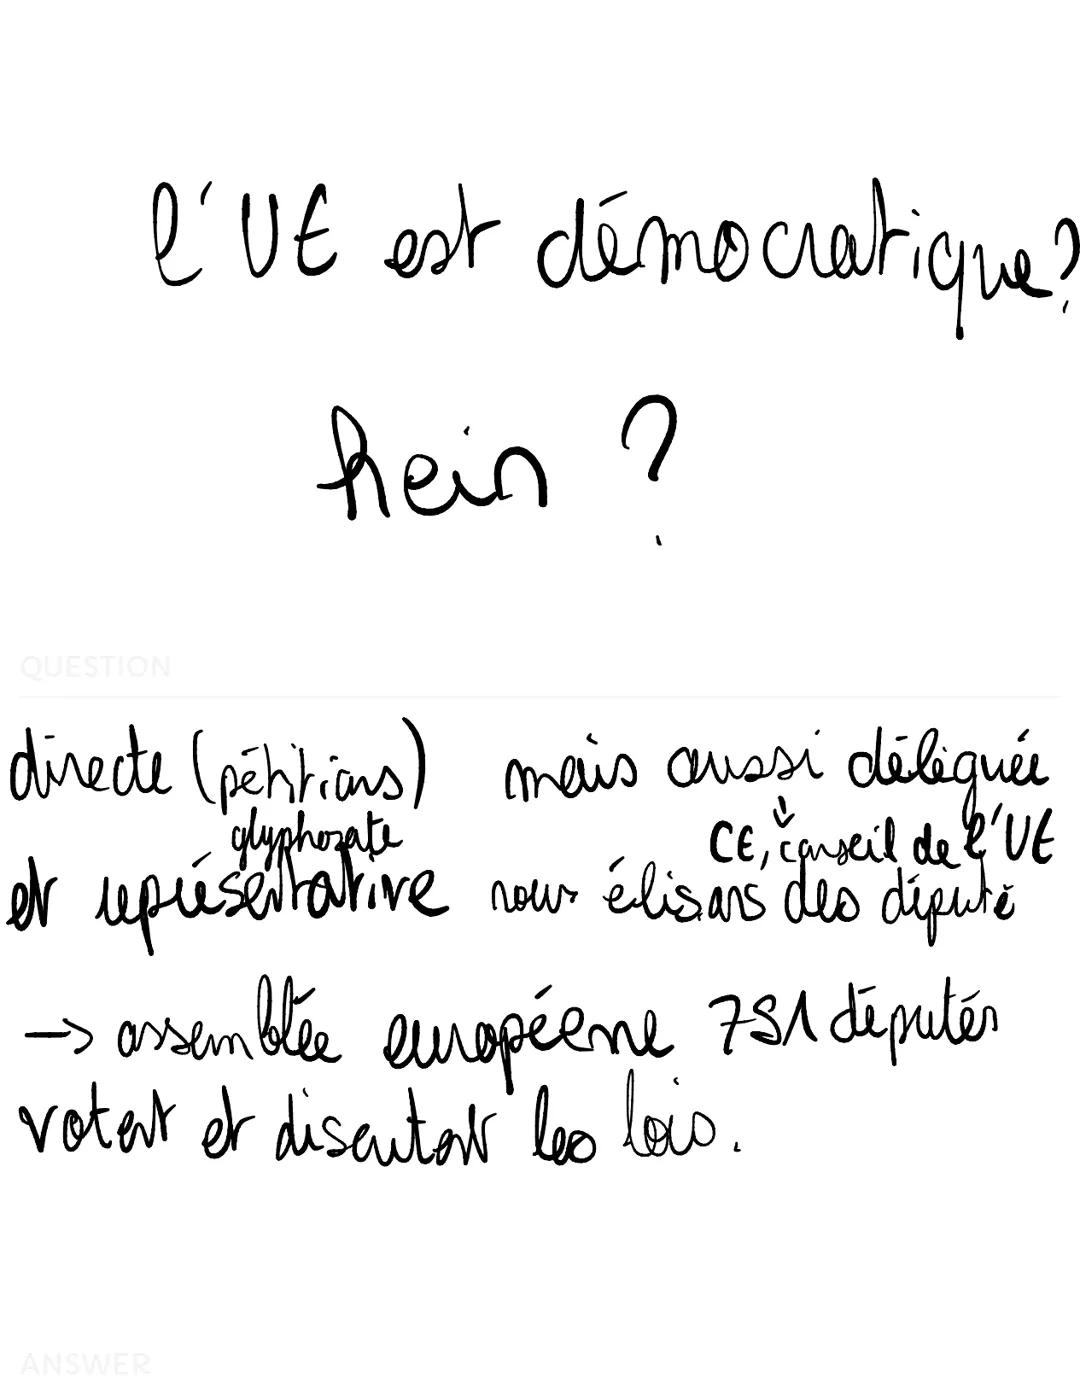 l'UE est démocratique?
hein ?
QUESTION
directe (pétitions) mais aussi déléguée
glyphozate CE, conseil de l'UE
et représentative nous élisons des député
→ assemblée européenne 751 députés
votent et discutent les lois.
ANSWER